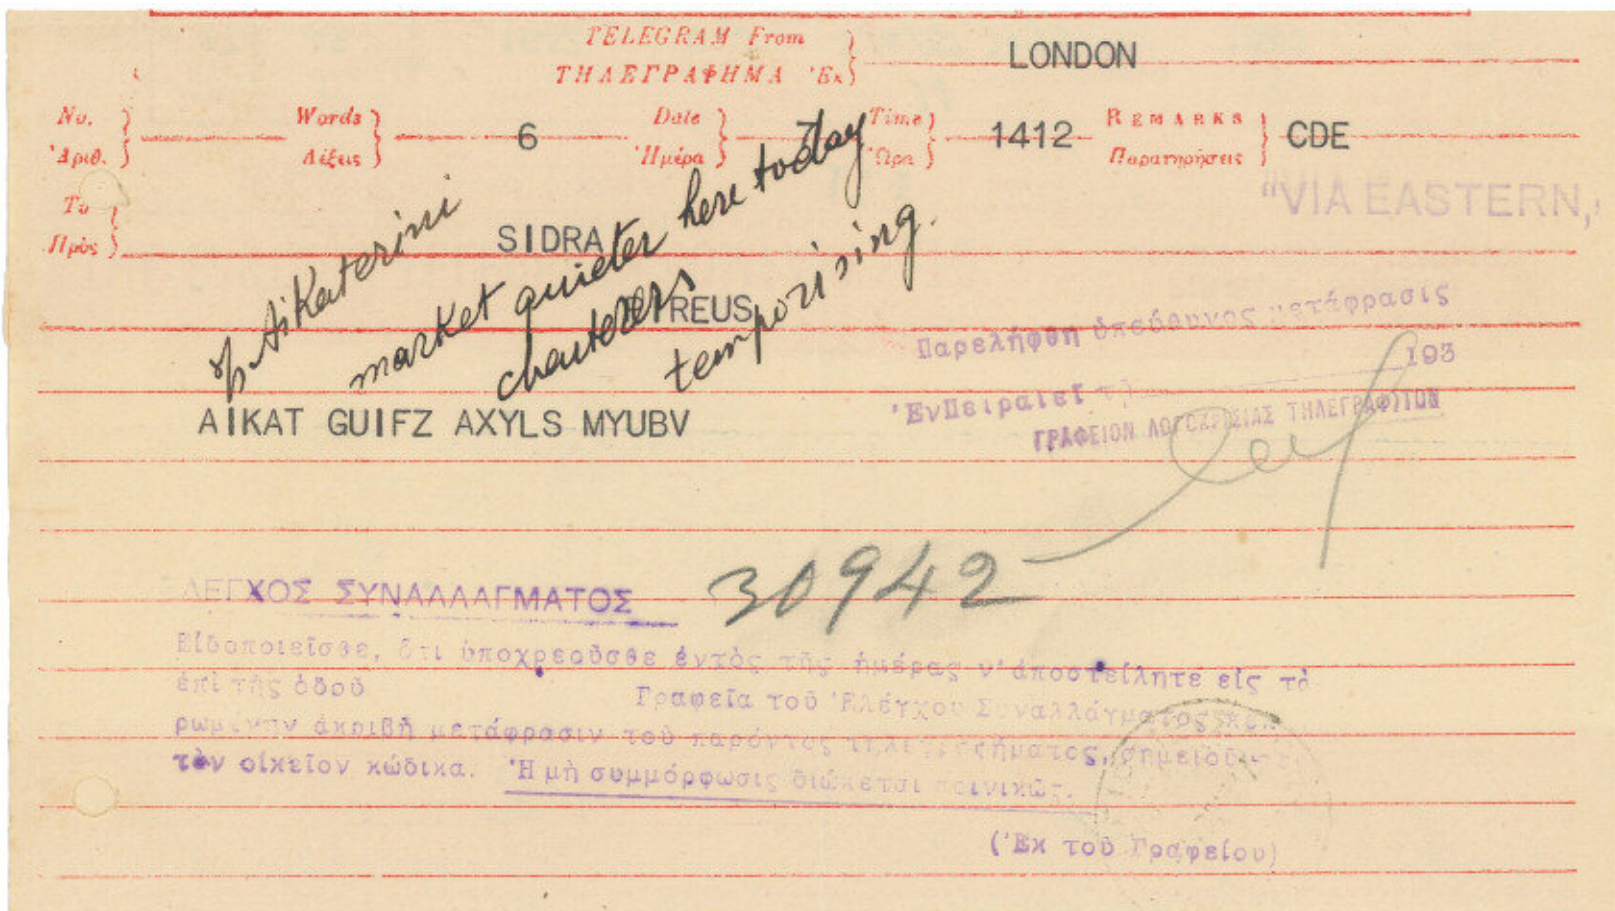 TELEGRAM From
ΤΗΛΕΓΡΑΦΗΜΑ Ἐκ
LONDON
No. Words 6 Date 7 Time 1412 REMARKS CDE
Ἀριθ. Λέξεις Ἡμέρα Ὥρα Παρατηρήσεις
"VIA EASTERN,,
To
Πρὸς
SIDRA
REUS
s/s Aikaterini
market quieter here today
charterers
temporising.
AIKAT GUIFZ AXYLS MYUBV
Παρελήφθη ὑπεύθυνος μετάφρασις
Ἐν Πειραιεῖ τῇ 193
ΓΡΑΦΕΙΟΝ ΛΟΓΟΚΡΙΣΙΑΣ ΤΗΛΕΓΡΑΦΗΤΩΝ
30942
ΛΕΓΧΟΣ ΣΥΝΑΛΛΑΓΜΑΤΟΣ
Εἰδοποιεῖσθε, ὅτι ὑποχρεοῦσθε ἐντὸς τῆς ἡμέρας ν' ἀποστείλητε εἰς τὰ
ἐπὶ τῆς ὁδοῦ Γραφεῖα τοῦ Ἐλέγχου Συναλλάγματος
ἀκριβῆ μετάφρασιν τοῦ παρόντος τηλεγραφήματος,
τὸν οἰκεῖον κώδικα. Ἡ μὴ συμμόρφωσις διώκεται ποινικῶς.
(Ἐκ τοῦ Γραφείου)